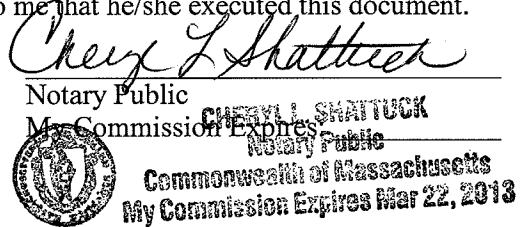 o me that he/she executed this document.
Cheryl L Shattuck
Notary Public
My Commission Expires
CHERYL L. SHATTUCK
Notary Public
Commonwealth of Massachusetts
My Commission Expires Mar 22, 2013